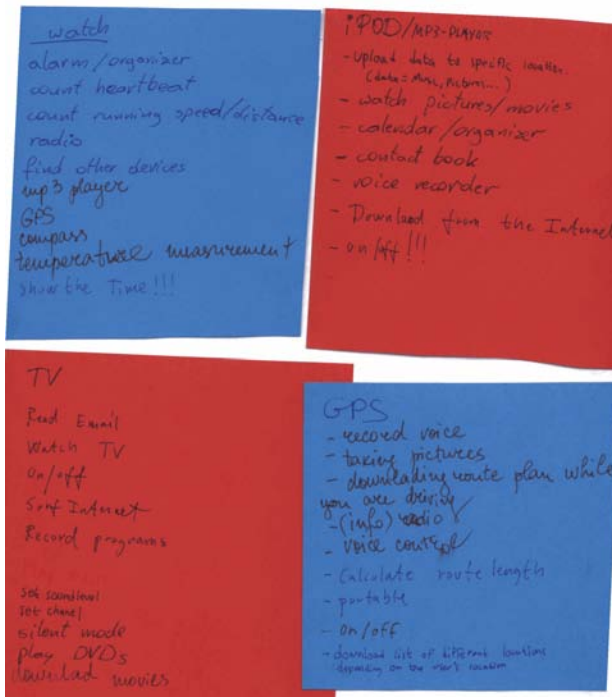 watch
alarm/organizer
count heartbeat
count running speed/distance
radio
find other devices
mp3 player
GPS
compass
temperature measurement
show the Time!!!
iPOD/MP3-PLAYER
- upload data to specific location.
(data = Music, Pictures...)
- watch pictures/movies
- calendar/organizer
- contact book
- voice recorder
- Download from the Internet
- on/off!!!
TV
Read Email
Watch TV
on/off
Surf Internet
Record programs
Set soundlevel
set chanel
silent mode
play DVDs
download movies
GPS
- record voice
- taking pictures
- downloading route plan while
you are driving
- (info) radio
- voice control
- Calculate route length
- portable
- on/off
- download list of different locations
depending on the user's location